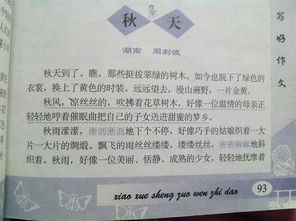 秋天
湖南 周利波
写好作文
秋天到了。瞧，那些挺拔翠绿的树木，如今也脱下了绿色的
衣裳，换上了黄色的时装。远远望去，漫山遍野，一片金黄。
秋风，凉丝丝的，吹拂着花草树木，好像一位温情的母亲正
轻轻地哼着催眠曲把自己的子女送进甜蜜的梦乡。
秋雨濛濛，淅沥淅沥地下个不停，好像巧手的姑娘织着一大
片一大片的绸缎。飘飞的雨丝丝丝缕缕、缕缕丝丝，密密麻麻地斜
织着。秋雨，好像一位美丽、恬静、成熟的少女，轻轻地抚摩着
xiao xue sheng zuo wen zhi dao
93